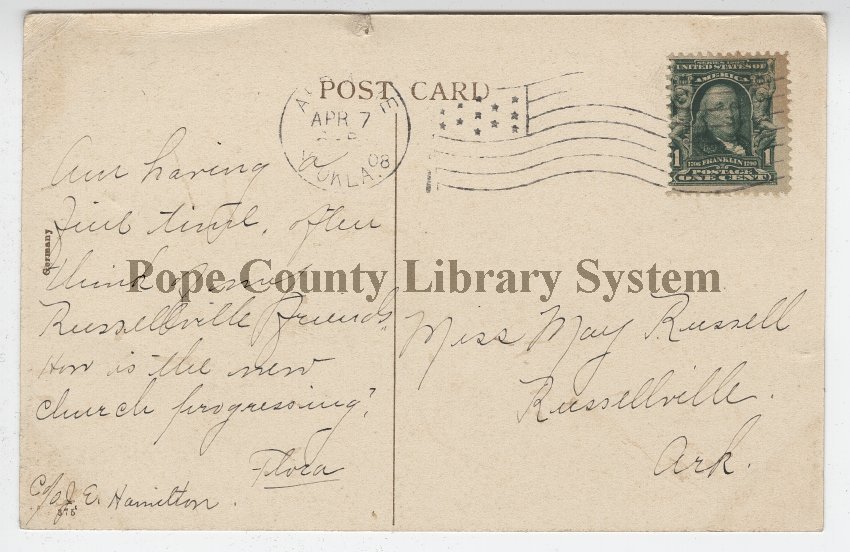 POST CARD
APR 7
08
OKLA.
SERIES 1902
UNITED STATES OF
AMERICA
1 FRANKLIN 1
POSTAGE
ONE CENT
Am having a
fine time, often
think of my
Russellville friends.
How is the new
church progressing?
Flora
c/o J. E. Hamilton.
575
Germany
Pope County Library System
Miss May Russell
Russellville.
Ark.